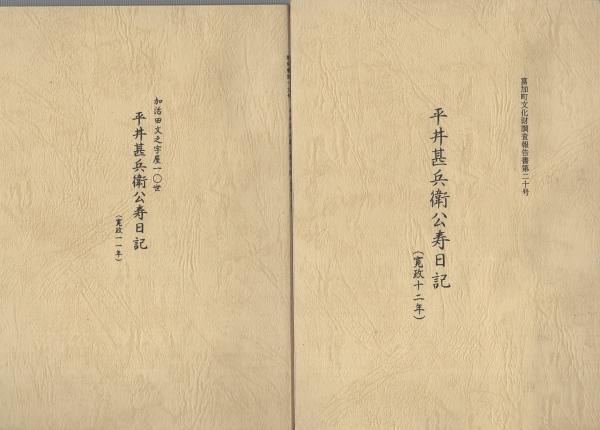 富加町文化財調査報告書第二十号
平井甚兵衛公寿日記
(寛政十二年)
加治田文之字屋一〇世
平井甚兵衛公寿日記
(寛政一一年)